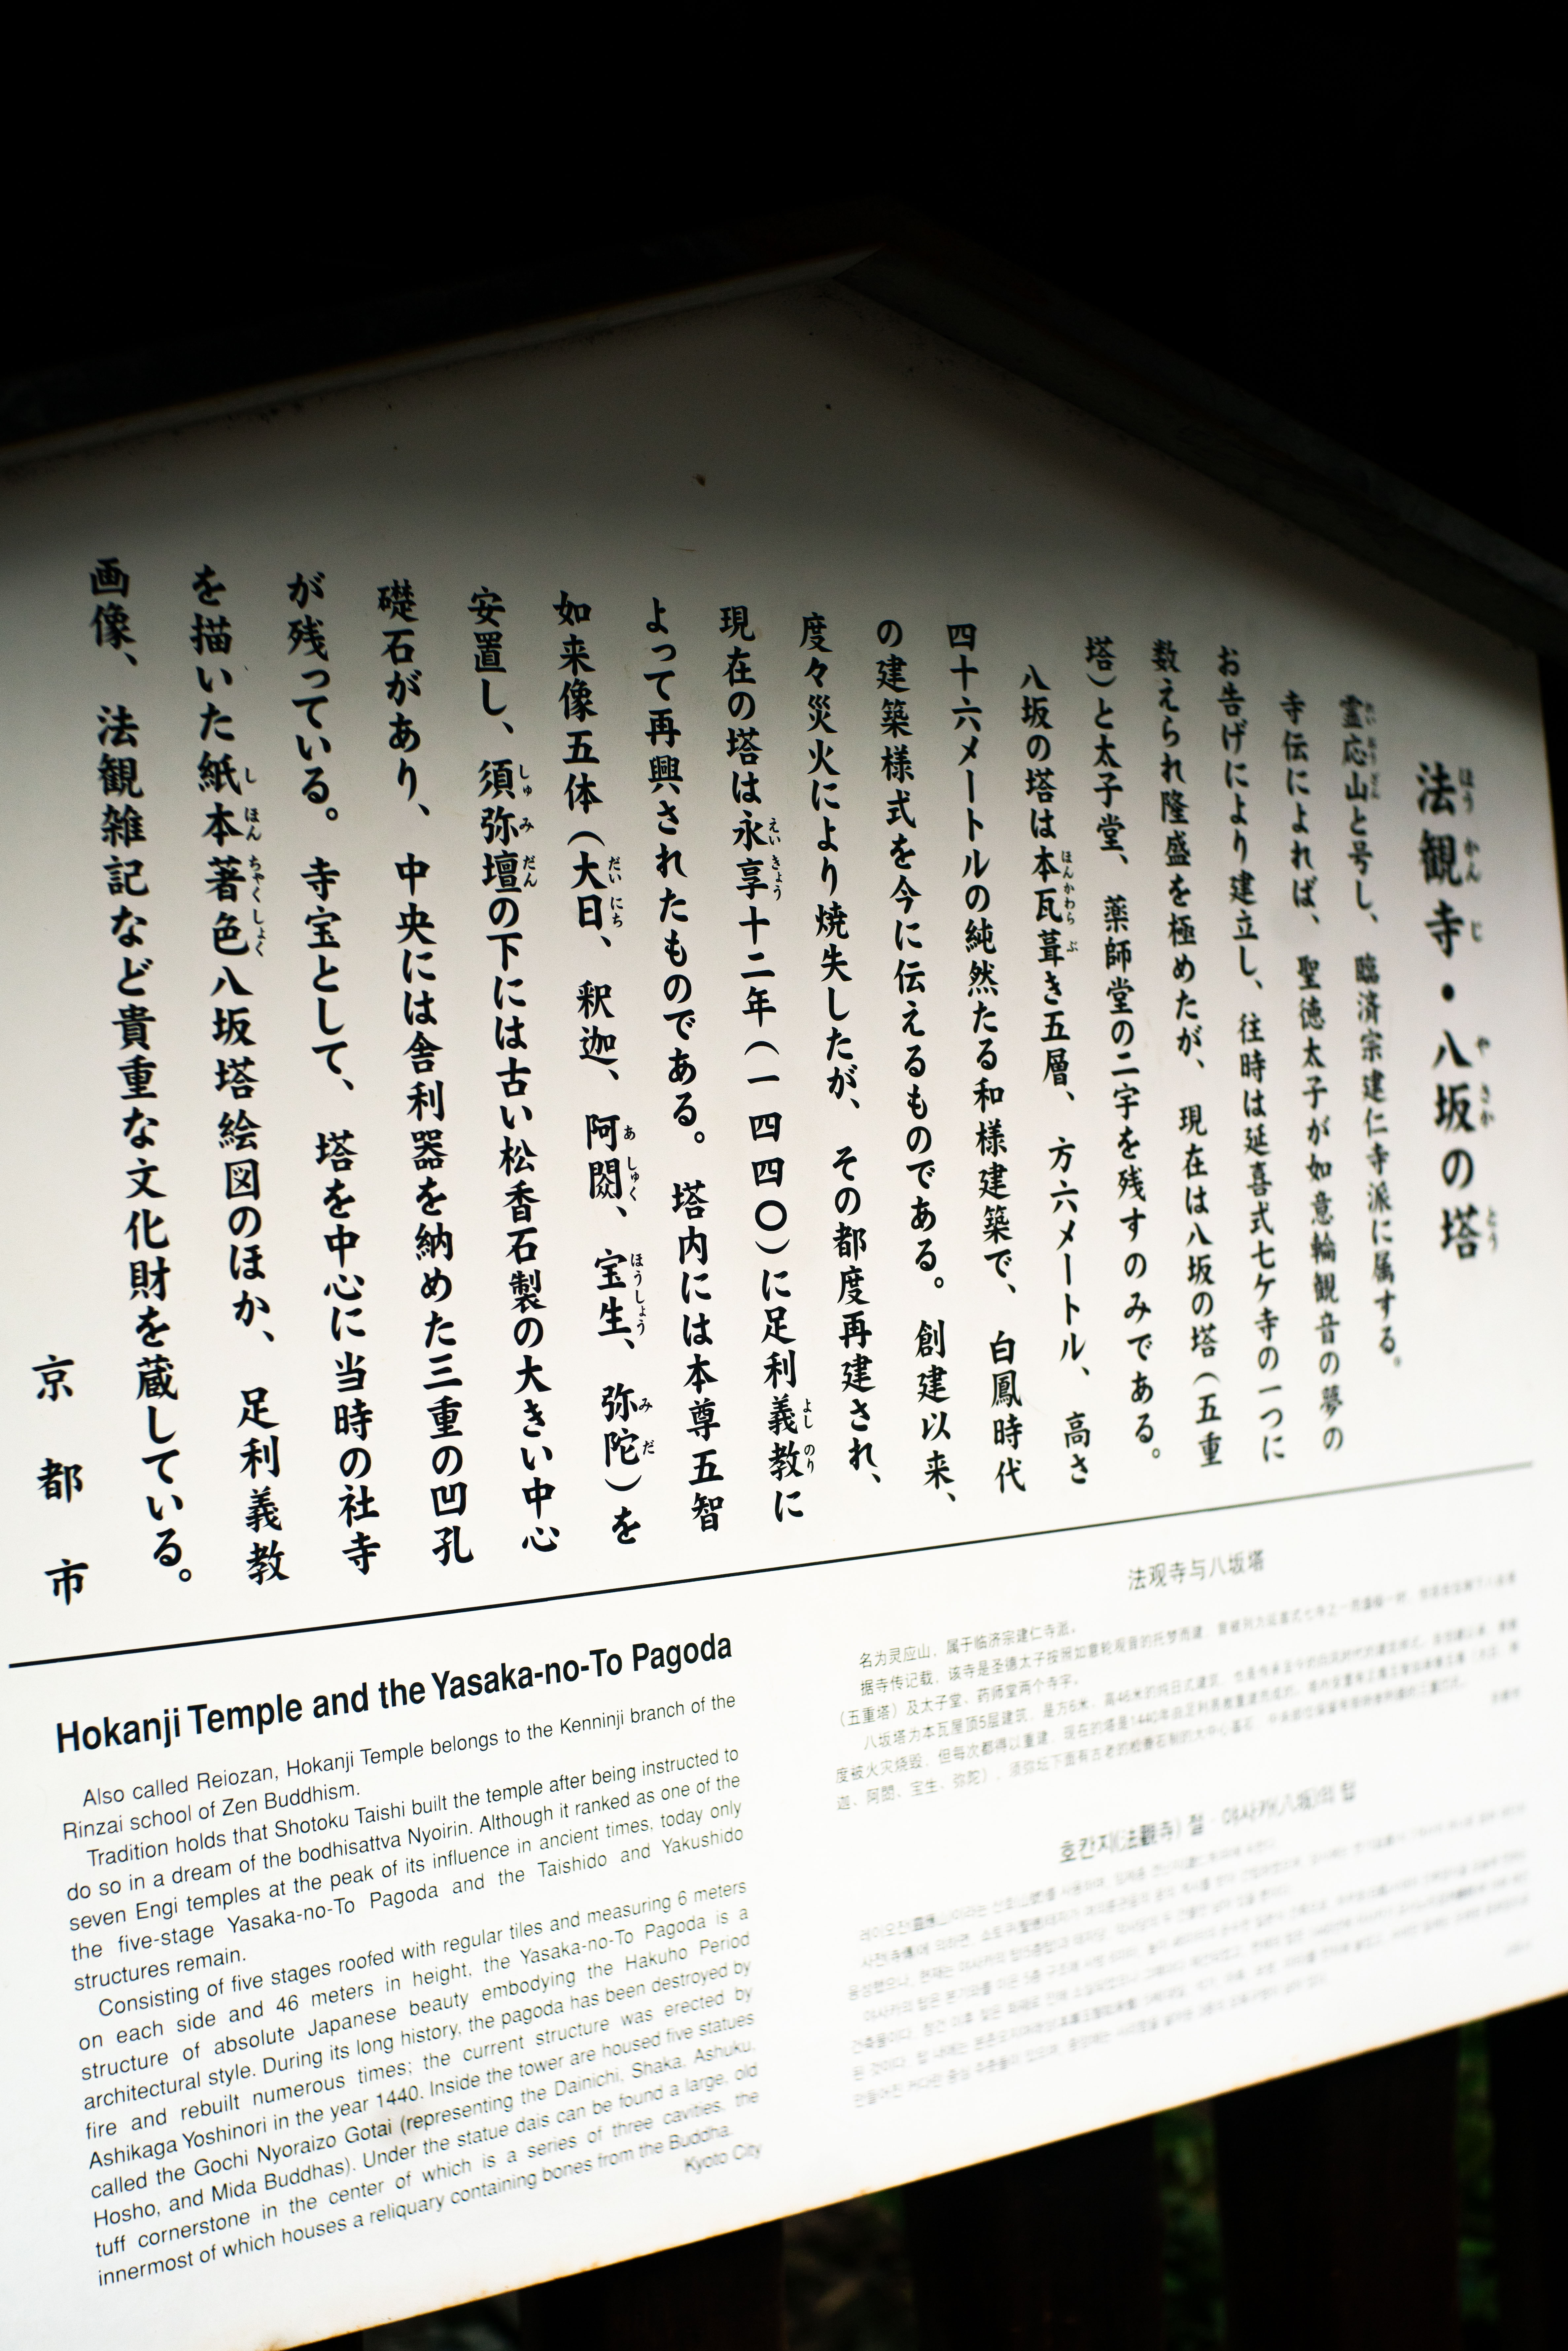 法観寺・八坂の塔
霊応山と号し、臨済宗建仁寺派に属する。
寺伝によれば、聖徳太子が如意輪観音の夢の
お告げにより建立し、往時は延喜式七ケ寺の一つに
数えられ隆盛を極めたが、現在は八坂の塔（五重
塔）と太子堂、薬師堂の二宇を残すのみである。
八坂の塔は本瓦葺き五層、方六メートル、高さ
四十六メートルの純然たる和様建築で、白鳳時代
の建築様式を今に伝えるものである。創建以来、
度々災火により焼失したが、その都度再建され、
現在の塔は永享十二年（一四四〇）に足利義教に
よって再興されたものである。塔内には本尊五智
如来像五体（大日、釈迦、阿閦、宝生、弥陀）を
安置し、須弥壇の下には古い松香石製の大きい中心
礎石があり、中央には舎利器を納めた三重の凹孔
が残っている。寺宝として、塔を中心に当時の社寺
を描いた紙本著色八坂塔絵図のほか、足利義教
画像、法観雑記など貴重な文化財を蔵している。
京都市
Hokanji Temple and the Yasaka-no-To Pagoda
Also called Reiozan, Hokanji Temple belongs to the Kenninji branch of the
Rinzai school of Zen Buddhism.
Tradition holds that Shotoku Taishi built the temple after being instructed to
do so in a dream of the bodhisattva Nyoirin. Although it ranked as one of the
seven Engi temples at the peak of its influence in ancient times, today only
the five-stage Yasaka-no-To Pagoda and the Taishido and Yakushido
structures remain.
Consisting of five stages roofed with regular tiles and measuring 6 meters
on each side and 46 meters in height, the Yasaka-no-To Pagoda is a
structure of absolute Japanese beauty embodying the Hakuho Period
architectural style. During its long history, the pagoda has been destroyed by
fire and rebuilt numerous times; the current structure was erected by
Ashikaga Yoshinori in the year 1440. Inside the tower are housed five statues
called the Gochi Nyoraizo Gotai (representing the Dainichi, Shaka, Ashuku,
Hosho, and Mida Buddhas). Under the statue dais can be found a large, old
tuff cornerstone in the center of which is a series of three cavities, the
innermost of which houses a reliquary containing bones from the Buddha.
Kyoto City
法观寺与八坂塔
名为灵应山，属于临济宗建仁寺派。
据寺传记载，该寺是圣德太子按照如意轮观音的托梦而建
（五重塔）及太子堂、药师堂两个寺宇。
八坂塔为本瓦屋顶5层建筑，是方6米，高46米的纯日式建筑
度被火灾烧毁，但每次都得以重建，现在的塔是1440年由足利义教重建
迦、阿閦、宝生、弥陀），须弥坛下面有古老的松香石制的大中心基石
호칸지(法觀寺) 절・야사카(八坂)의 탑